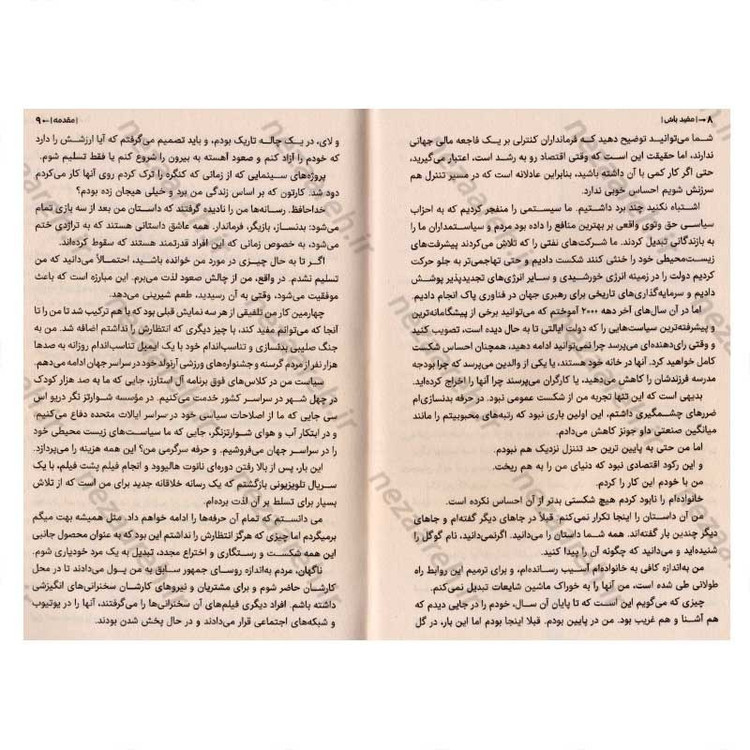 ۸ ← | مفید باش |
شما می‌توانید توضیح دهید که فرمانداران کنترلی بر یک فاجعه مالی جهانی
ندارند، اما حقیقت این است که وقتی اقتصاد رو به رشد است، اعتبار می‌گیرید،
حتی اگر کار کمی با آن داشته باشید، بنابراین عادلانه است که در مسیر تنزل هم
سرزنش شویم احساس خوبی ندارد.
اشتباه نکنید چند برد داشتیم. ما سیستمی را منفجر کردیم که به احزاب
سیاسی حق وتوی واقعی بر بهترین منافع را داده بود مردم و سیاستمداران ما را
به بازندگانی تبدیل کردند. ما شرکت‌های نفتی را که تلاش می‌کردند پیشرفت‌های
زیست‌محیطی خود را خنثی کنند شکست دادیم و حتی تهاجمی‌تر به جلو حرکت
کردیم دولت را در زمینه انرژی خورشیدی و سایر انرژی‌های تجدیدپذیر پوشش
دادیم و سرمایه‌گذاری‌های تاریخی برای رهبری جهان در فناوری پاک انجام دادیم.
اما در آن سال‌های آخر دهه ۲۰۰۰ آموختم که می‌توانید برخی از پیشگامانه‌ترین
و پیشرفته‌ترین سیاست‌هایی را که دولت ایالتی تا به حال دیده است، تصویب کنید
و وقتی رای‌دهنده‌ای می‌پرسد چرا نمی‌توانید ادامه دهید، همچنان احساس شکست
کامل خواهید کرد. آنها در خانه خود هستند، یا یکی از والدین می‌پرسد که چرا بودجه
مدرسه فرزندشان را کاهش می‌دهید، یا کارگران می‌پرسند چرا آنها را اخراج کرده‌اید.
بدیهی است که این تنها تجربه من از شکست عمومی نبود. در حرفه بدنسازی‌ام
ضررهای چشمگیری داشتم، این اولین باری نبود که رتبه‌های محبوبیتم را مانند
میانگین صنعتی داو جونز کاهش می‌دادم.
اما من حتی به پایین ترین حد تنزل نزدیک هم نبودم.
و این رکود اقتصادی نبود که دنیای من را به هم ریخت.
من با خودم این کار را کردم.
خانواده‌ام را نابود کردم هیچ شکستی بدتر از آن احساس نکرده است.
من آن داستان را اینجا تکرار نمی‌کنم. قبلاً در جاهای دیگر گفته‌ام و جاهای
دیگر چندین بار گفته‌اند. همه شما داستان را می‌دانید. اگرنمی‌دانید، نام گوگل را
شنیده‌اید و می‌دانید که چگونه آن را پیدا کنید.
من به‌اندازه کافی به خانواده‌ام آسیب رسانده‌ام، و برای ترمیم این روابط راه
طولانی طی شده است، من آنها را به خوراک ماشین شایعات تبدیل نمی‌کنم.
چیزی که می‌گویم این است که تا پایان آن سال، خودم را در جایی دیدم که
هم آشنا و هم غریب بود. من در پایین بودم. قبلا اینجا بودم اما این بار، در گل
| مقدمه | ← ۹
و لای، در یک چاله تاریک بودم، و باید تصمیم می‌گرفتم که آیا ارزشش را دارد
که خودم را آزاد کنم و صعود آهسته به بیرون را شروع کنم یا فقط تسلیم شوم.
پروژه‌های سینمایی که از زمانی که کنگره را ترک کردم روی آنها کار می‌کردم
دود شد. کارتون که بر اساس زندگی من برد و خیلی هیجان زده بودم؟
خداحافظ. رسانه‌ها من را نادیده گرفتند که داستان من بعد از سه بازی تمام
می‌شود: بدنساز، بازیگر، فرماندار. همه عاشق داستانی هستند که به تراژدی ختم
می‌شود، به خصوص زمانی که این افراد قدرتمند هستند که سقوط کرده‌اند.
اگر تا به حال چیزی در مورد من خوانده باشید، احتمـالاً می‌دانید که من
تسلیم نشدم. در واقع، من از چالش صعود لذت می‌برم. این مبارزه است که باعث
موفقیت می‌شود، وقتی به آن رسیدید، طعم شیرینی می‌دهد.
چهارمین کار من تلفیقی از هر سه نمایش قبلی بود که با هم ترکیب شد تا من را تا
آنجا که می‌توانم مفید کند، با چیز دیگری که انتظارش را نداشتم اضافه شد. من به
جنگ صلیبی بدنسازی و تناسب‌اندام خود با یک ایمیل تناسب‌اندام روزانه به صدها
هزار نفر از مردم گرسنه و جشنواره‌های ورزشی آرنولد خودم در سراسر جهان ادامه می‌دهم.
سیاست من در کلاس‌های فوق برنامه آل استارز، جایی که ما به صد هزار کودک
در چهل شهر در سراسر کشور خدمت می‌کنیم. در مؤسسه شوارتز نگر دریو اس
سی جایی که ما از اصلاحات سیاسی خود در سراسر ایالات متحده دفاع می‌کنیم
و در ابتکار آب و هوای شوارتزنگر، جایی که ما سیاست‌های زیست محیطی خود
را در سراسر جهان می‌فروشیم. و حرفه سرگرمی من؟ این همه هزینه را می‌پردازد.
این بار، پس از بالا رفتن دوره‌ای نانوت هالیوود و انجام فیلم پشت فیلم، با یک
سریال تلویزیونی بازگشتم که یک رسانه خلاقانه جدید برای من است که از تلاش
بسیار برای تسلط بر آن لذت برده‌ام.
می دانستم که تمام آن حرفه‌ها را ادامه خواهم داد. مثل همیشه بهت میگم
برمیگردم اما چیزی که هرگز انتظارش را نداشتم این بود که به عنوان محصول جانبی
این همه شکست و رستگاری و اختراع مجدد، تبدیل به یک مرد خودیاری شوم.
ناگهان، مردم به‌اندازه روسای جمهور سابق به من پول می‌دادند تا در محل
کارشان حاضر شوم و برای مشتریان و نیروهای کارشان سخنرانی‌های انگیزشی
داشته باشم. افراد دیگری فیلم‌های آن سخنرانی‌ها را می‌گرفتند، آنها را در یوتیوب
و شبکه‌های اجتماعی قرار می‌دادند و در حال پخش شدن بودند.
nezaareh.ir